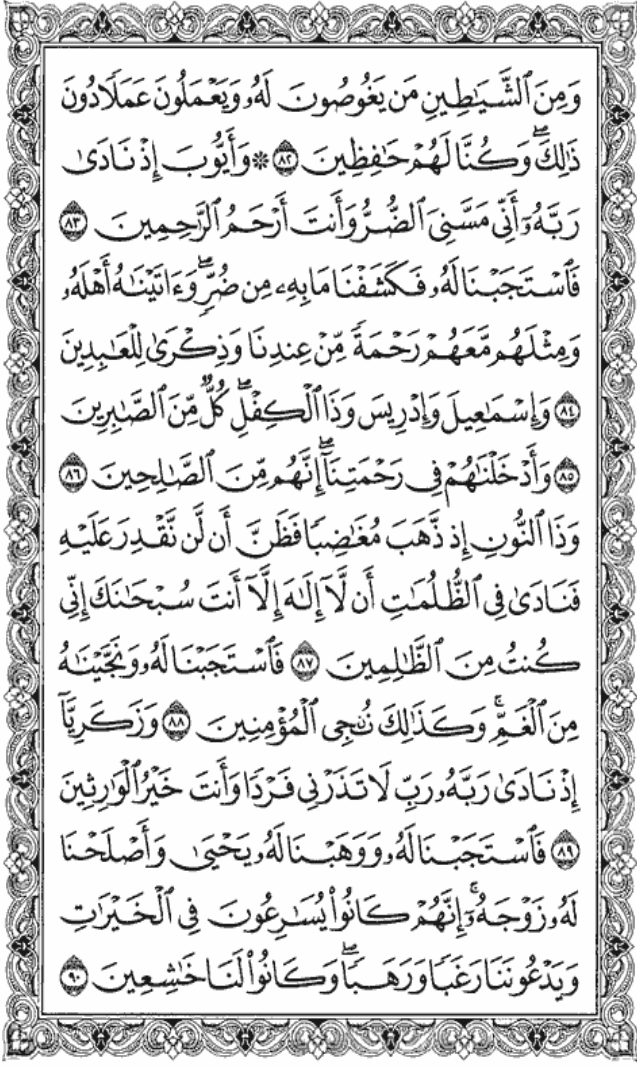 وَمِنَ ٱلشَّيَٰطِينِ مَن يَغُوصُونَ لَهُۥ وَيَعْمَلُونَ عَمَلًا دُونَ
ذَٰلِكَۖ وَكُنَّا لَهُمْ حَٰفِظِينَ ٨٢ ۞ وَأَيُّوبَ إِذْ نَادَىٰ
رَبَّهُۥٓ أَنِّى مَسَّنِىَ ٱلضُّرُّ وَأَنتَ أَرْحَمُ ٱلرَّٰحِمِينَ ٨٣
فَٱسْتَجَبْنَا لَهُۥ فَكَشَفْنَا مَا بِهِۦ مِن ضُرٍّۖ وَءَاتَيْنَٰهُ أَهْلَهُۥ
وَمِثْلَهُم مَّعَهُمْ رَحْمَةً مِّنْ عِندِنَا وَذِكْرَىٰ لِلْعَٰبِدِينَ
٨٤ وَإِسْمَٰعِيلَ وَإِدْرِيسَ وَذَا ٱلْكِفْلِۖ كُلٌّ مِّنَ ٱلصَّٰبِرِينَ
٨٥ وَأَدْخَلْنَٰهُمْ فِى رَحْمَتِنَآۖ إِنَّهُم مِّنَ ٱلصَّٰلِحِينَ ٨٦
وَذَا ٱلنُّونِ إِذ ذَّهَبَ مُغَٰضِبًا فَظَنَّ أَن لَّن نَّقْدِرَ عَلَيْهِ
فَنَادَىٰ فِى ٱلظُّلُمَٰتِ أَن لَّآ إِلَٰهَ إِلَّآ أَنتَ سُبْحَٰنَكَ إِنِّى
كُنتُ مِنَ ٱلظَّٰلِمِينَ ٨٧ فَٱسْتَجَبْنَا لَهُۥ وَنَجَّيْنَٰهُ
مِنَ ٱلْغَمِّۚ وَكَذَٰلِكَ نُۨجِى ٱلْمُؤْمِنِينَ ٨٨ وَزَكَرِيَّآ
إِذْ نَادَىٰ رَبَّهُۥ رَبِّ لَا تَذَرْنِى فَرْدًا وَأَنتَ خَيْرُ ٱلْوَٰرِثِينَ
٨٩ فَٱسْتَجَبْنَا لَهُۥ وَوَهَبْنَا لَهُۥ يَحْيَىٰ وَأَصْلَحْنَا
لَهُۥ زَوْجَهُۥٓۚ إِنَّهُمْ كَانُوا۟ يُسَٰرِعُونَ فِى ٱلْخَيْرَٰتِ
وَيَدْعُونَنَا رَغَبًا وَرَهَبًاۖ وَكَانُوا۟ لَنَا خَٰشِعِينَ ٩٠